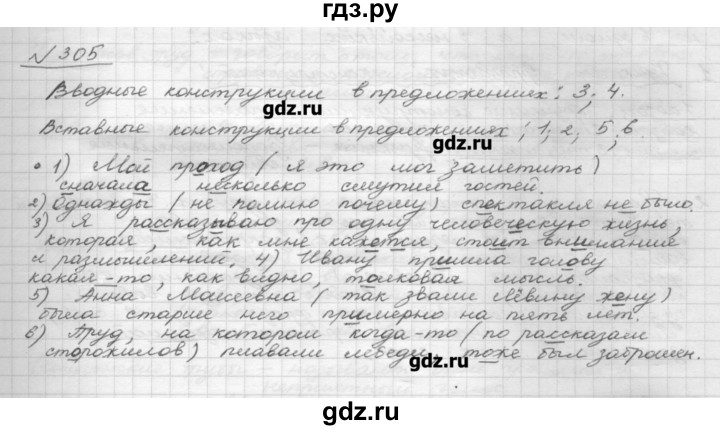 гдз.ру
№ 305
Вводные конструкции в предложениях: 3; 4.
gdz.ru
gdz.ru
Вставные конструкции в предложениях; 1; 2; 5, 6.
• 1) Мой приход ( я это мог заметить )
сначала несколько смутил гостей.
2) Однажды ( не помню почему) спектакля не было.
3) Я рассказываю про одну человеческую жизнь,
которая, как мне кажется, стоит внимания
и размышлений. 4) Ивану пришла голову
какая-то, как видно, толковая мысль.
5) Анна Моисеевна ( так звали Лёвину жену)
была старше него примерно на пять лет.
6) Пруд, на котором когда-то ( по рассказам
старожилов) плавали лебеди, тоже был заброшен.
gdz.ru
gdz.ru